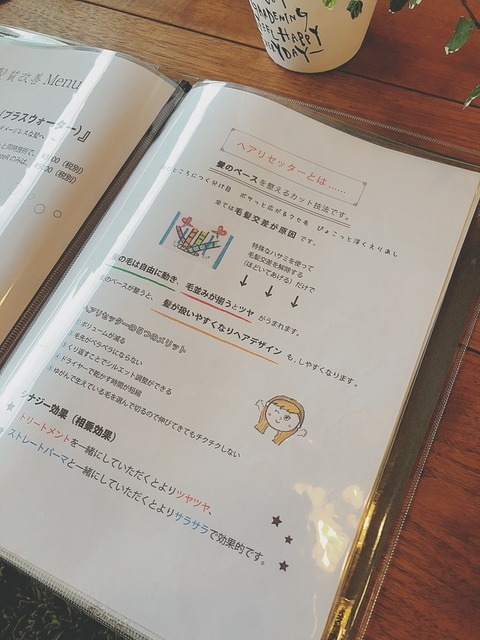 GARDENING
HAPPY
DAY
質改善 Menu
(プラスウォーター)』
(税別)
(税別)
ヘアリセッターとは……
髪のベースを整えるカット技法です。
ところにつく分け目 ボサっと広がるクセ毛 ぴょこっと浮くえりあし
全ては毛髪交差が原因です。
特殊なハサミを使って
毛髪交差を解除する
(ほどいてあげる)だけで
の毛は自由に動き、毛並みが揃うとツヤ がうまれます。
のベースが整うと、 髪が扱いやすくなりヘアデザイン も、しやすくなります。
ヘアリセッターの5つのメリット
ボリュームが減る
毛先がペラペラにならない
くり返すことでシルエット調整ができる
ドライヤーで乾かす時間が短縮
ゆがんで生えている毛を選んで切るので伸びてきてもチクチクしない
シナジー効果(相乗効果)
トリートメントを一緒にしていただくとよりツヤツヤ、
ストレートパーマと一緒にしていただくとよりサラサラで効果的です。